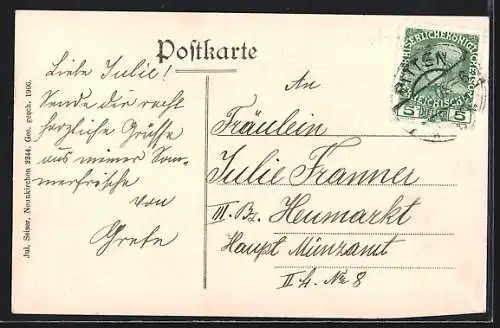 Postkarte
Liebe Julie!
Sende dir recht
herzliche Grüße
aus meiner Som-
merfrische
von
Grete
An
Fräulein
Julie Franner
III. Bz. Heumarkt
Haupt Münzamt
II. St. No 8
Jul. Seiser, Neunkirchen 2244. Ges. gesch. 1906.
KAISERLICHE KÖNIGLICHE
5 5
PITTEN